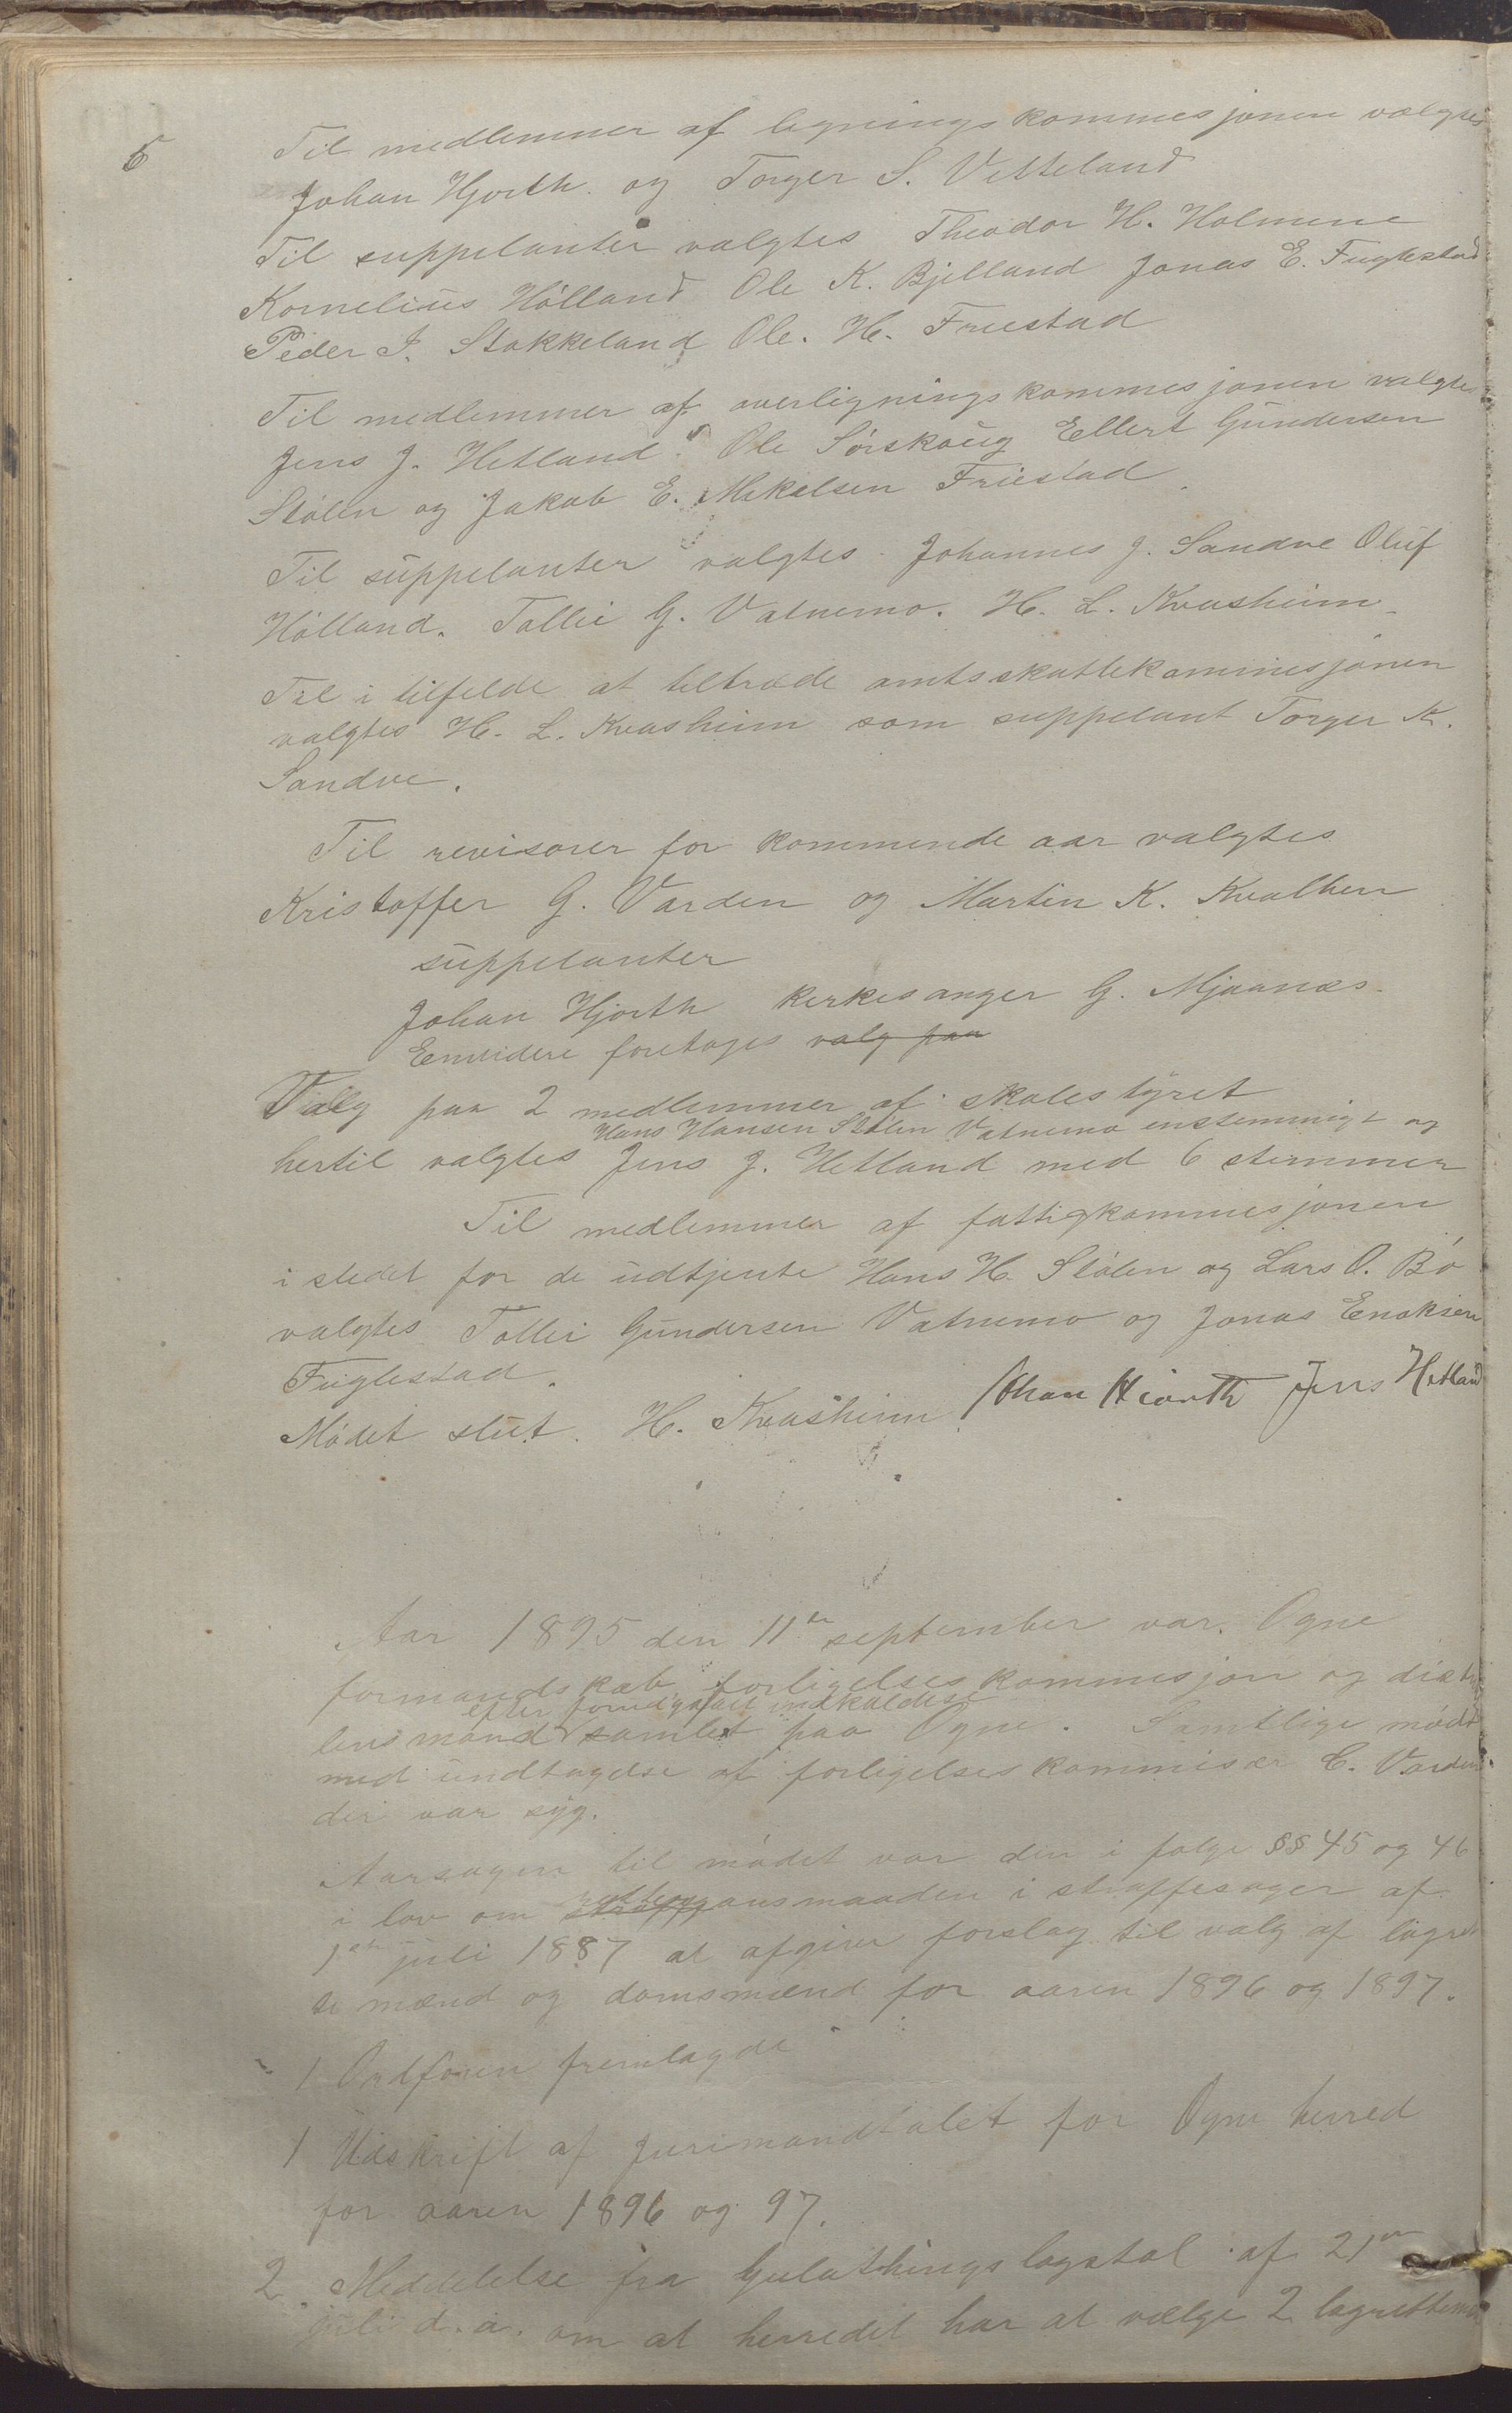 5
Til medlemmer af lignings kommesjonen valgtes
Johan Hjorth. og Torger S. Vetteland
Til suppelanter valgtes Theodor H. Holmene
Kornelius Hølland Ole K. Bjelland Jonas E. Fuglestad
Peder J. Stokkeland Ole. H. Friestad
Til medlemmer af overlignings kommesjonen valgtes
Jens J. Hetland. Ole Sørskoug Ellert Gundersen
Stølen og Jakob E. Mikelsen Friestad.
Til suppelanter valgtes Johannes J. Sandve Oluf
Hølland. Tollei G. Vatnemo. H. L. Kvasheim
Til i tilfelde at tiltræde amtsskattekommesjonen
valgtes H. L. Kvasheim som suppelant Torger K.
Sandve.
Til revisorer for kommende aar valgtes
Kristoffer G. Varden og Martin K. Kvalben
suppelanter
Johan Hjorth kirkesanger G. Mjaanes
Enviidere foretoges valg paa
Valg paa 2 medlemmer af skolestyret
Hans Hansen Stølen Vatnemo enstemmigt og
hertil valgtes Jens J. Hetland med 6 stemmer
Til medlemmer af fattigkommesjonen
i stedet for de udtjente Hans H. Stølen og Lars O. Bø
valgtes Tollei Gundersen Vatnemo og Jonas Enoksen
Fuglestad.
Mødet slut. H. Kvasheim Johan Hiorth Jens Hetland
Aar 1895 den 11te september var. Ogne
formandskab forligelseskommesjon og distr
efter forudgaaet indkaldelse
lensmand samlet paa Ogne. Samtlige mødt
med undtagelse af forligelseskommisær C. Varden
der var syg.
Aarsagen til mødet var den i følge §§ 45 og 46
i lov om rettergangsmaaden i straffesager af
1ste juli 1887 at afgive forslag til valg af lagret
te mænd og domsmænd for aaren 1896 og 1897.
1 Ordføren fremlagde
1 Udskrift af Jurimandtalet for Ogne herred
for aaren 1896 og 97.
2. Meddelelse fra Gulathings lagstol af 21de
juli d. a. om at herredet har at vælge 2 lagrettemæ